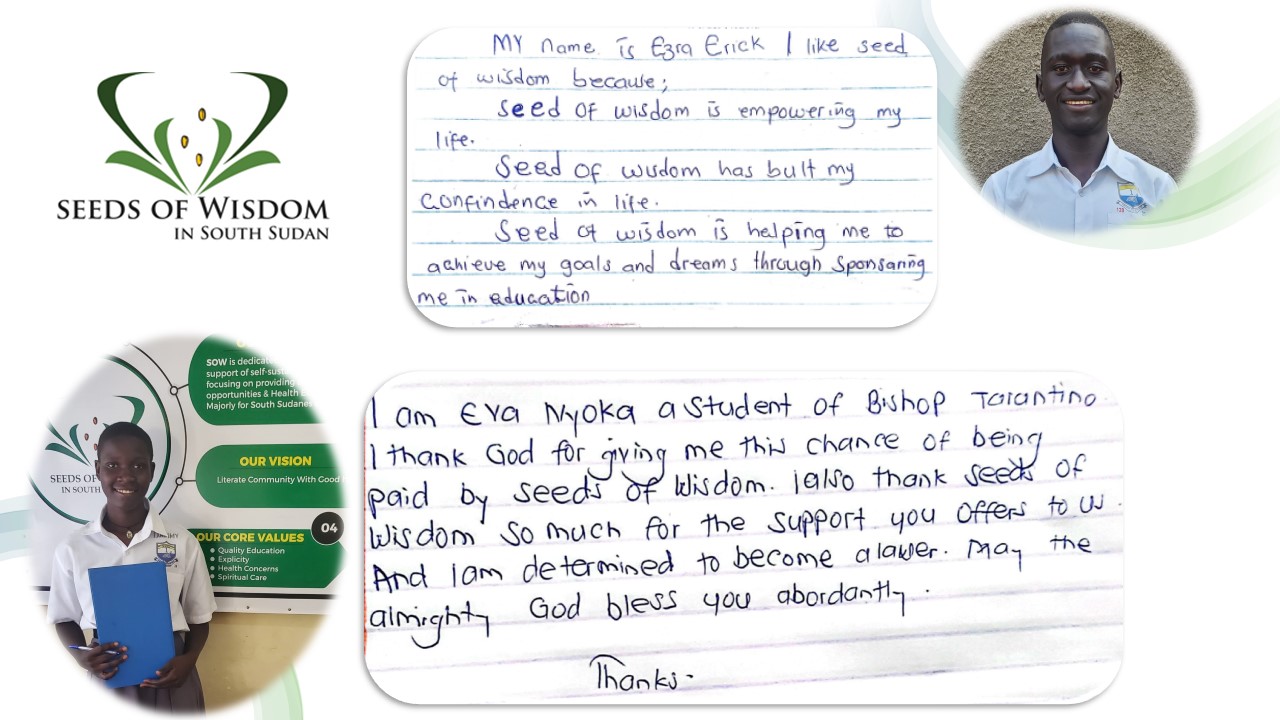 SEEDS OF WISDOM
IN SOUTH SUDAN
MY name is Ezra Erick I like seed
of wisdom because;
Seed of wisdom is empowering my
life.
Seed of wisdom has built my
confindence in life.
Seed of wisdom is helping me to
achieve my goals and dreams through Sponsaring
me in education
SOW is dedica
support of self-sus
focusing on providing
opportunities & Health
Majorly for South Sudanes
SEEDS OF
IN SOUTH
OUR VISION
Literate Community With Good
04
OUR CORE VALUES
Quality Education
Explicity
Health Concerns
Spiritual Care
I am Eva Nyoka a student of Bishop Tarantino.
I thank God for giving me this chance of being
paid by seeds of Wisdom. I also thank seeds of
Wisdom so much for the support you offers to us.
And I am determined to become a lawer. May the
almighty God bless you abordantly.
Thanks.